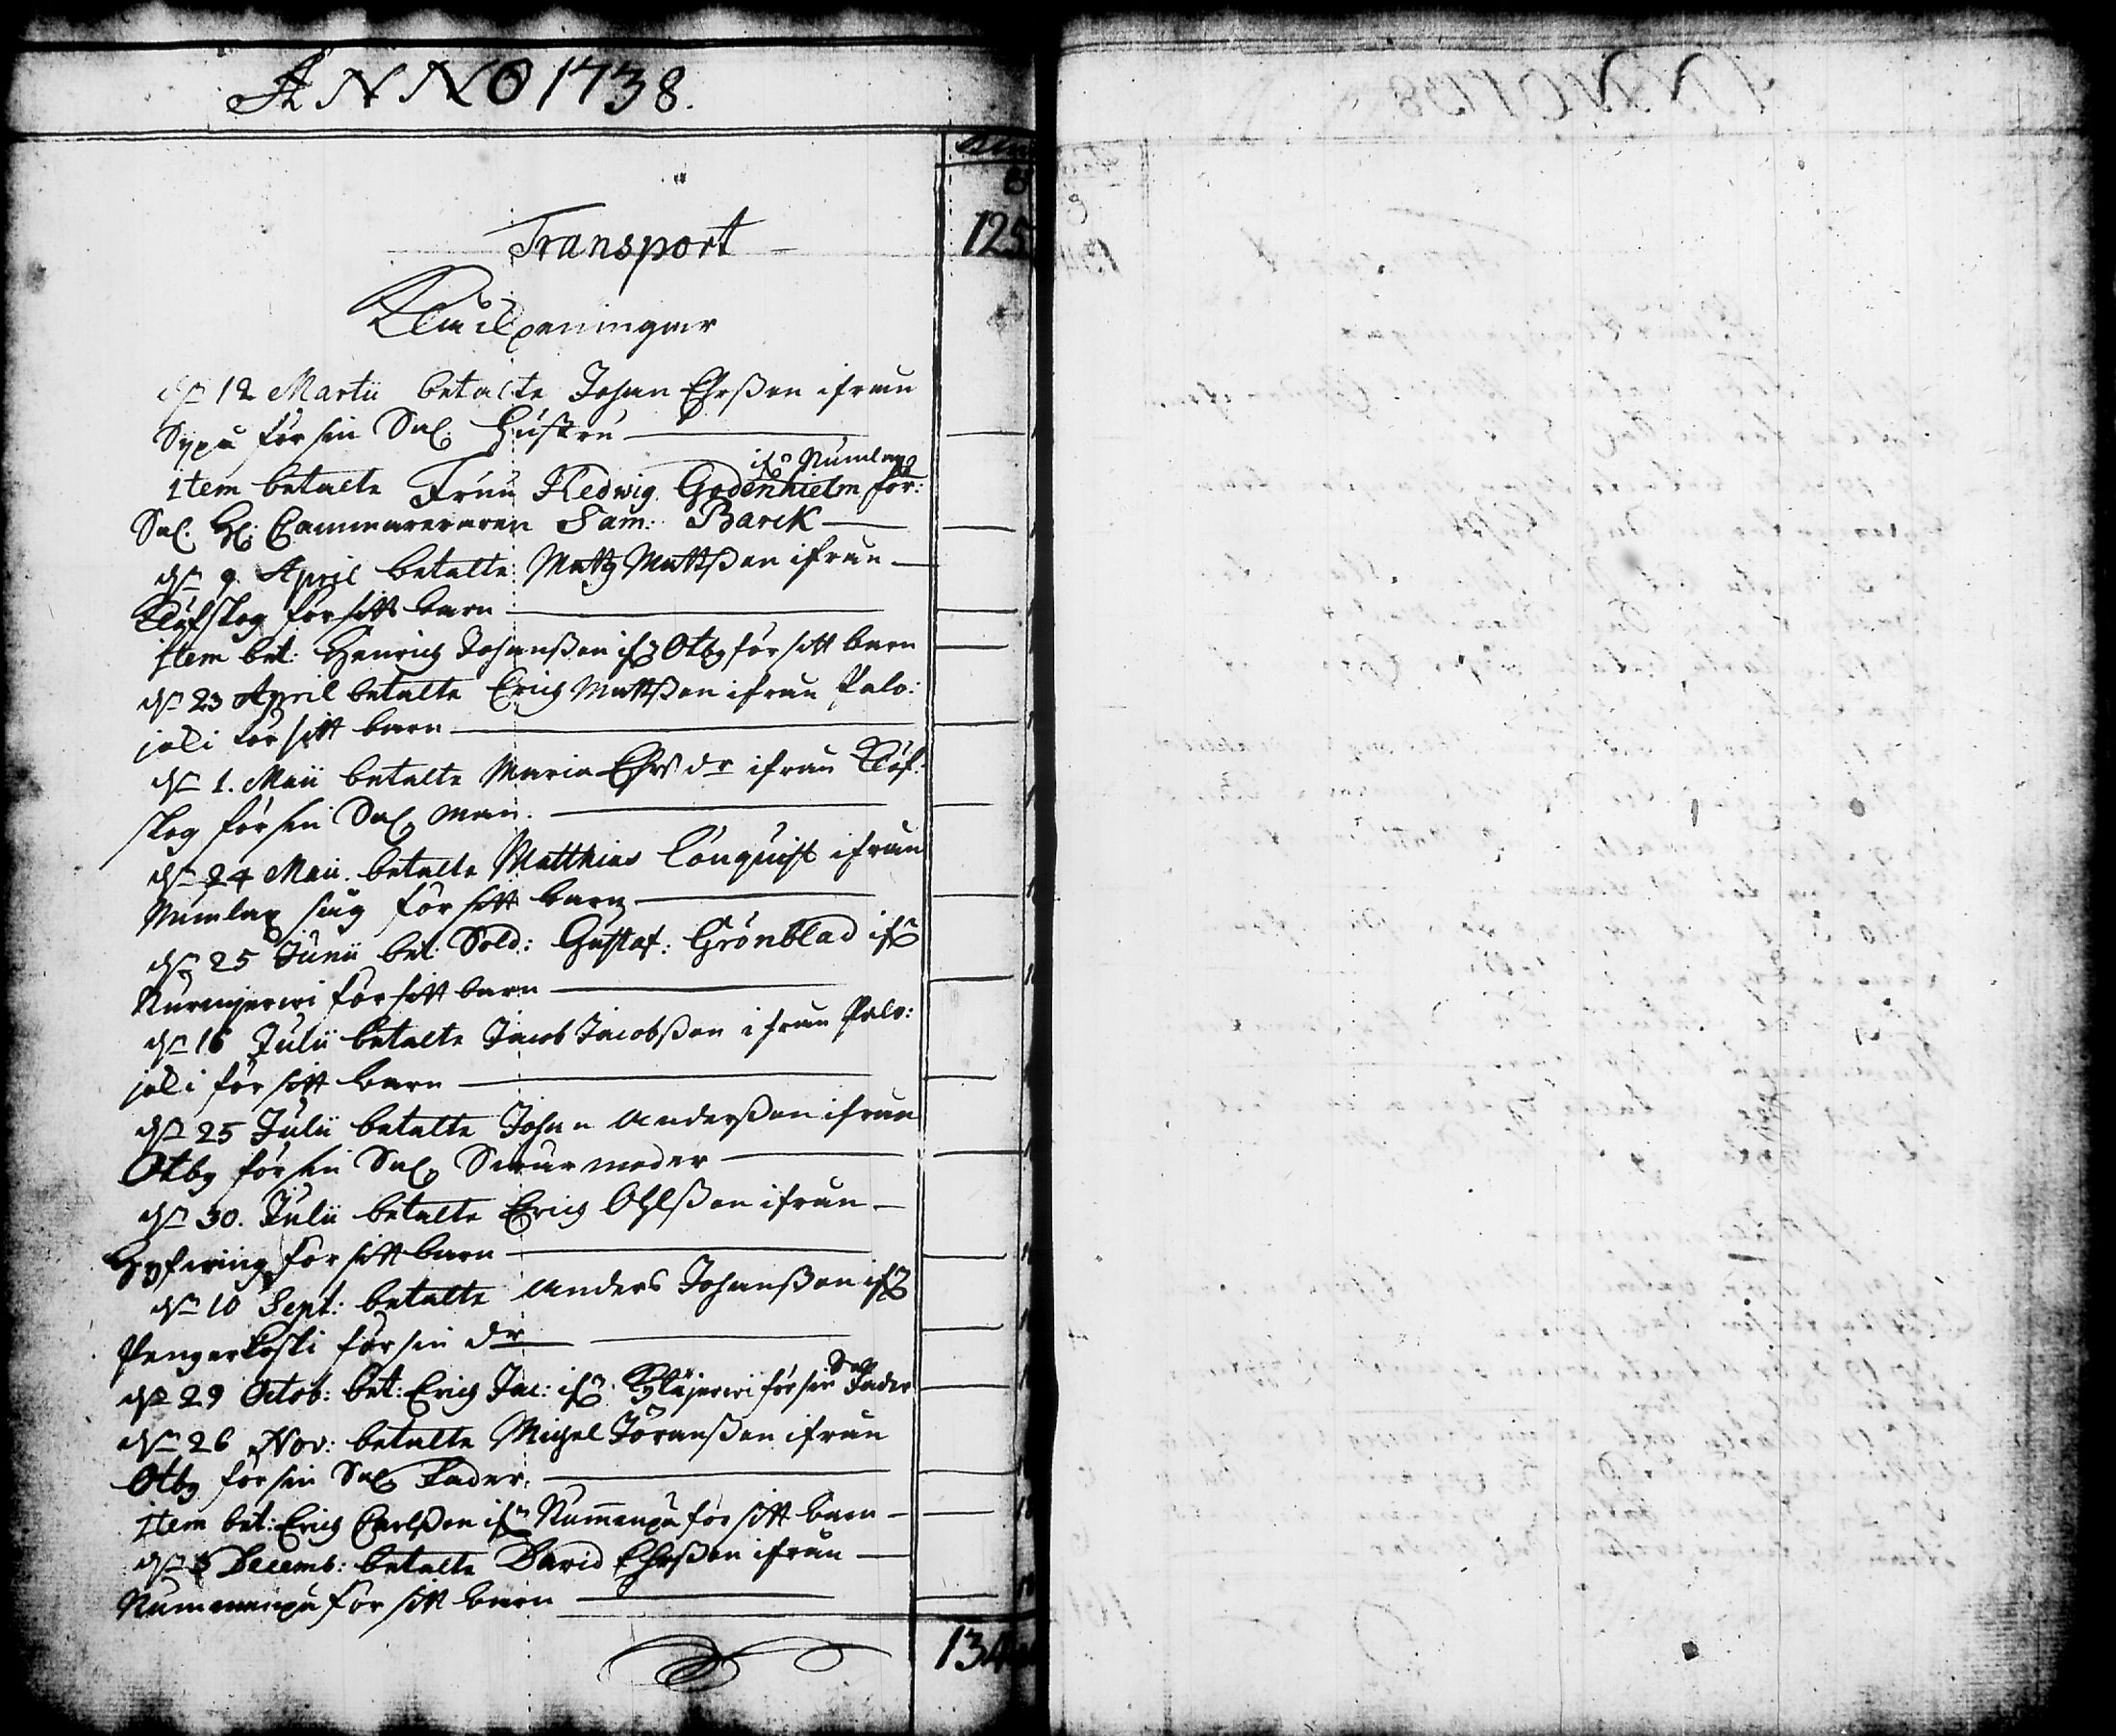 ANNO 1738.
Transport 125
Klåckpeningar
dn 12 Martii betalte Johan Ehrßon ifrån
Sypå för sin Sal. Hustru
item betalte Fruu Hedwig Godenhielm för:
ifrån Numlax
Sal. H: Cammereraren Sam: Barck
dn 9. April betalte Matz Mattßon ifrån
Klöfskog för sitt barn
item bet: Henrich Johanßon ifr Otby för sitt barn
dn 23 April betalte Erich Mattßon ifrån Palo:
joki för sitt barn
dn 1. Maii betalte Maria Ehrs dr ifrån Klöf:
skog för sin Sal. man.
dn 24 Maii betalte Matthias Lönquist ifrån
Numlax för sitt barn
dn 25 Junii bet: Sold: Gustaf: Grönblad ifr
Nurmijerwi för sitt barn
dn 16 Julii betalte Jacob Jacobßon ifrån Palo:
joki för sitt barn
dn 25 Julii betalte Johan Anderßon ifrån
Otby för sin Sal. Swärmoder
dn 30. Julii betalte Erich Ohlßon ifrån
Hyfwing för sitt barn
dn 10 Sept: betalte Anders Johanßon ifr
Pengarkoski för sin dr
dn 29 Octob: bet: Erich Jac: ifr Kyläjerwi för sin Sal. Fader
dn 26 Nov: betalte Michel Jöranßon ifrån
Otby för sin Sal. Fader.
item bet: Erich Carlßon ifr Nummenpä för sitt barn
dn 3 Decemb: betalte David Ehrßon ifrån
Nummenpä för sitt barn
134